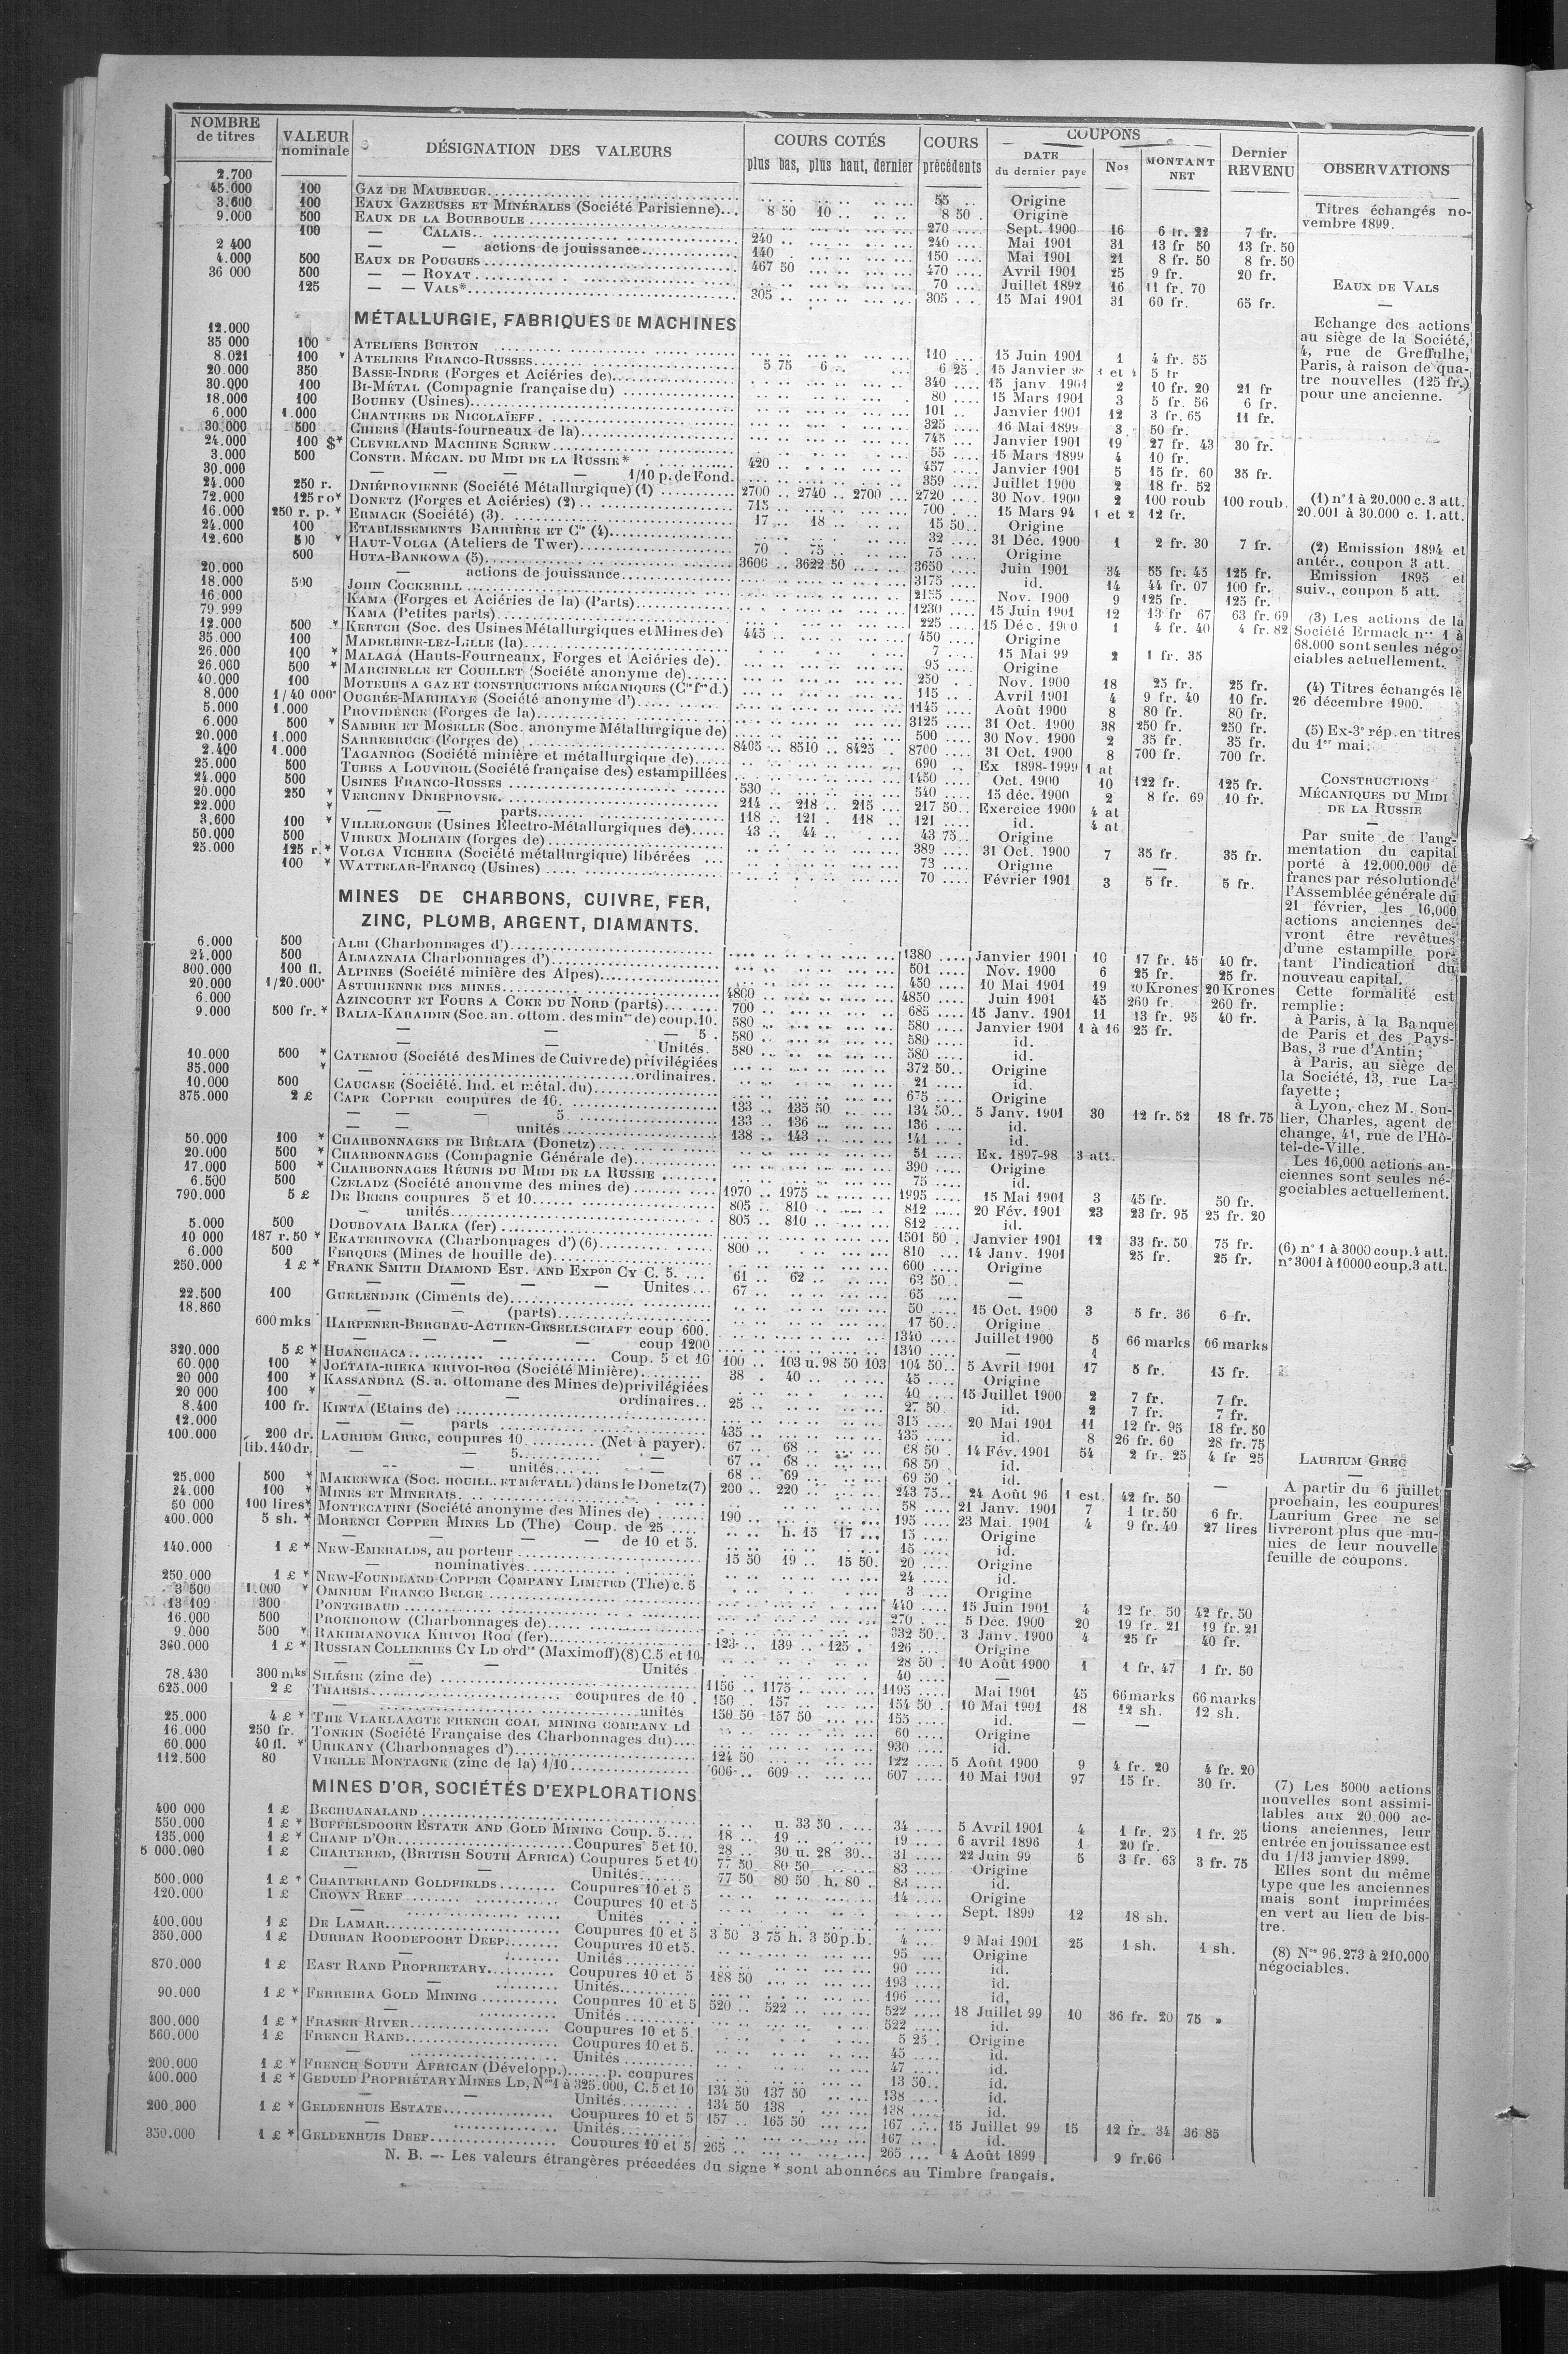 NOMBRE de titres | VALEUR nominale | DÉSIGNATION DES VALEURS | COURS COTÉS plus bas, plus haut, dernier | COURS précédents | COUPONS DATE du dernier paye | Nos | MONTANT NET | Dernier REVENU | OBSERVATIONS
2.700 100 GAZ DE MAUBEUGE 55 Origine
45.000 100 EAUX GAZEUSES ET MINÉRALES (Société Parisienne) 8 50 10 8 50 Origine
3.600 500 EAUX DE LA BOURBOULE 270 Sept. 1900 16 6 fr. 22 7 fr.
9.000 100 — CALAIS 240 240 Mai 1901 31 13 fr 50 13 fr. 50
— — actions de jouissance 140 150 Mai 1901 21 8 fr. 50 8 fr. 50
2 400 500 EAUX DE POUGUES 467 50 470 Avril 1901 25 9 fr. 20 fr.
4.000 500 — — ROYAT 70 Juillet 1892 16 11 fr. 70
36 000 125 — — VALS* 305 305 15 Mai 1901 31 60 fr. 65 fr.
MÉTALLURGIE, FABRIQUES DE MACHINES
12.000 100 ATELIERS BURTON 110 15 Juin 1901 1 4 fr. 55
35 000 100 * ATELIERS FRANCO-RUSSES 5 75 6 6 25 15 Janvier 1 et 5 fr
8.021 350 BASSE-INDRE (Forges et Aciéries de) 340 15 janv 1901 2 10 fr. 20 21 fr
20.000 100 BI-MÉTAL (Compagnie française du) 80 15 Mars 1901 3 5 fr. 56 6 fr.
30.000 100 BOUHEY (Usines) 101 Janvier 1901 12 3 fr. 65 11 fr.
18.000 1.000 CHANTIERS DE NICOLAÏEFF 325 16 Mai 1899 3 50 fr.
6.000 500 CHIERS (Hauts-fourneaux de la) 745 Janvier 1901 19 27 fr. 43 30 fr.
30.000 100 $* CLEVELAND MACHINE SCREW 55 15 Mars 1899 4 10 fr.
24.000 500 CONSTR. MÉCAN. DU MIDI DE LA RUSSIE* 420 457 Janvier 1901 5 15 fr. 60 35 fr.
3.000 — — — — 1/10 p. de Fond. 359 Juillet 1900 2 18 fr. 52
30.000 250 r. DNIÉPROVIENNE (Société Métallurgique) (1) 2700 2740 2700 2720 30 Nov. 1900 2 100 roub 100 roub.
24.000 125 ro* DONETZ (Forges et Aciéries) (2) 715 700 15 Mars 94 1 et 2 12 fr.
72.000 250 r. p. * ERMACK (Société) (3) 17 18 15 50 Origine
16.000 100 ETABLISSEMENTS BARRIÈRE ET Cie (4) 32 31 Déc. 1900 1 2 fr. 30 7 fr.
24.000 500 * HAUT-VOLGA (Ateliers de Twer) 70 75 75 Origine
12.600 500 HUTA-BANKOWA (5) 3600 3622 50 3650 Juin 1901 34 55 fr. 45 125 fr.
— actions de jouissance 3175 id. 14 44 fr. 07 100 fr.
20.000 500 JOHN COCKERILL 2155 Nov. 1900 9 125 fr. 125 fr.
18.000 KAMA (Forges et Aciéries de la) (Parts) 1230 15 Juin 1901 12 13 fr 67 63 fr. 69
16.000 KAMA (Petites parts) 225 15 Déc. 1900 1 4 fr. 40 4 fr. 82
79.999 500 * KERTCH (Soc. des Usines Métallurgiques et Mines de) 445 450 Origine
12.000 100 MADELEINE-LEZ-LILLE (la) 7 15 Mai 99 2 1 fr. 35
35.000 100 * MALAGA (Hauts-Fourneaux, Forges et Aciéries de) 95 Origine
26.000 500 * MARCINELLE ET COUILLET (Société anonyme de) 250 Nov. 1900 18 25 fr. 25 fr.
26.000 100 MOTEURS A GAZ ET CONSTRUCTIONS MÉCANIQUES (Cie fse d.) 115 Avril 1901 4 9 fr. 40 10 fr.
40.000 1/40 000* OUGRÉE-MARIHAYE (Société anonyme d') 1145 Août 1900 8 80 fr. 80 fr.
8.000 1.000 PROVIDENCE (Forges de la) 3125 31 Oct. 1900 38 250 fr. 250 fr.
5.000 500 * SAMBRE ET MOSELLE (Soc. anonyme Métallurgique de) 500 30 Nov. 1900 2 35 fr. 35 fr.
6.000 1.000 SARREBRUCK (Forges de) 8405 8510 8425 8700 31 Oct. 1900 8 700 fr. 700 fr.
20.000 1.000 TAGANROG (Société minière et métallurgique de) 690 Ex 1898-1999 1 at
2.400 500 TUBES A LOUVROIL (Société française des) estampillées 1450 Oct. 1900 10 122 fr. 125 fr.
25.000 500 USINES FRANCO-RUSSES 530 540 15 déc. 1900 2 8 fr. 69 10 fr.
24.000 250 * VERCHNY DNIEPROVSK 214 218 215 217 50 Exercice 1900 4 at
20.000 * — — parts 118 121 118 121 id. 4 at
22.000 100 * VILLELONGUE (Usines Electro-Métallurgiques de) 43 44 43 75 Origine
3.600 500 VIREUX MOLHAIN (forges de) 389 31 Oct. 1900 7 35 fr. 35 fr.
50.000 125 r.* VOLGA VICHERA (Société métallurgique) libérées 73 Origine —
25.000 100 * WATTELAR-FRANCQ (Usines) 70 Février 1901 3 5 fr. 5 fr.
MINES DE CHARBONS, CUIVRE, FER,
ZINC, PLOMB, ARGENT, DIAMANTS.
6.000 500 ALBI (Charbonnages d') 1380 Janvier 1901 10 17 fr. 45 40 fr.
24.000 500 ALMAZNAIA Charbonnages d') 501 Nov. 1900 6 25 fr. 25 fr.
300.000 100 fl. ALPINES (Société minière des Alpes) 450 10 Mai 1901 19 20 Krones 20 Krones
20.000 1/20.000* ASTURIENNE DES MINES 4800 4850 Juin 1901 45 260 fr. 260 fr.
6.000 AZINCOURT ET FOURS A COKE DU NORD (parts) 700 685 15 Janv. 1901 11 13 fr. 95 40 fr.
9.000 500 fr. * BALIA-KARAIDIN (Soc. an. ottom. des mines de) coup. 10. 580 580 Janvier 1901 1 à 16 25 fr.
— — 5 580 580 id.
— — Unités. 580 580 id.
10.000 500 * CATEMOU (Société des Mines de Cuivre de) privilégiées 372 50 Origine
35.000 * — ordinaires. 21 id.
10.000 500 CAUCASE (Société. Ind. et métal. du) 675 Origine
375.000 2 £ CAPE COPPER coupures de 10. 133 135 50 134 50 5 Janv. 1901 30 12 fr. 52 18 fr. 75
— — — 5 133 136 136 id.
— — unités 138 143 141 id.
50.000 100 * CHARBONNAGES DE BIÉLAIA (Donetz) 51 Ex. 1897-98 3 att.
20.000 500 * CHARBONNAGES (Compagnie Générale de) 390 Origine
17.000 500 * CHARBONNAGES RÉUNIS DU MIDI DE LA RUSSIE 75 id.
6.500 500 CZELADZ (Société anonyme des mines de) 1970 1975 1995 15 Mai 1901 3 45 fr. 50 fr.
790.000 5 £ DE BEERS coupures 5 et 10 805 810 812 20 Fév. 1901 23 23 fr. 95 25 fr. 20
— unités 805 810 812 id.
5.000 500 DOUBOVAIA BALKA (fer) 1501 50 Janvier 1901 12 33 fr. 50 75 fr.
10 000 187 r. 50 * EKATERINOVKA (Charbonnages d') (6) 800 810 14 Janv. 1901 25 fr. 25 fr.
6.000 500 FERQUES (Mines de houille de) 600 Origine
250.000 1 £ * FRANK SMITH DIAMOND EST. AND EXPon CY C. 5. 61 62 63 50 —
— — — — Unites 67 65 —
22.500 100 GUELENDJIK (Ciments de) 50 15 Oct. 1900 3 5 fr. 36 6 fr.
18.860 — — (parts) 17 50 Origine
600 mks HARPENER-BERGBAU-ACTIEN-GESELLSCHAFT coup 600. 1340 Juillet 1900 5 66 marks 66 marks
— — — — coup 1200 1340 — 4
320.000 5 £ * HUANCHACA Coup. 5 et 10 100 103 u. 98 50 103 104 50 5 Avril 1901 17 5 fr. 15 fr.
60.000 100 * JOLTAIA-RIEKA KRIVOI-ROG (Société Minière) 38 40 45 Origine
20 000 100 * KASSANDRA (S. a. ottomane des Mines de) privilégiées 40 15 Juillet 1900 2 7 fr. 7 fr.
20 000 100 * — — ordinaires 25 27 50 id. 2 7 fr. 7 fr.
8.400 100 fr. KINTA (Etains de) 315 20 Mai 1901 11 12 fr. 95 18 fr. 50
12.000 — — parts 435 435 id. 8 26 fr. 60 28 fr. 75
100.000 200 dr. LAURIUM GREC, coupures 10 (Net à payer). 67 68 68 50 14 Fév. 1901 54 2 fr. 25 4 fr 25
lib. 140 dr. — — 5 — 67 68 68 50 id.
— — unités — 68 69 69 50 id.
25.000 500 * MAKEEWKA (SOC. HOUILL. ET MÉTALL.) dans le Donetz (7) 200 220 243 75 24 Août 96 1 est. 42 fr. 50 —
24.000 100 * MINES ET MINERAIS 58 21 Janv. 1901 7 1 fr. 50 6 fr.
50 000 100 lires* MONTECATINI (Société anonyme des Mines de) 190 195 23 Mai. 1901 4 9 fr. 40 27 lires
400.000 5 sh. * MORENCI COPPER MINES LD (The) Coup. de 25 h. 15 17 15 Origine
— — de 10 et 5. 15 id.
140.000 1 £ * NEW-EMERALDS, au porteur 15 50 19 15 50 20 Origine
— nominatives 24 id.
250.000 1 £ * NEW-FOUNDLAND COPPER COMPANY LIMITED (The) c. 5 3 Origine
3 500 1.000 * OMNIUM FRANCO BELGE 440 15 Juin 1901 4 12 fr. 50 42 fr. 50
13 109 300 PONTGIBAUD 270 5 Déc. 1900 20 19 fr. 21 19 fr. 21
16.000 500 PROKHOROW (Charbonnages de) 332 50 3 Janv. 1900 4 25 fr 40 fr.
9.000 500 * RAKHMANOVKA KRIVOI ROG (fer) 123 139 125 126 Origine
360.000 1 £ * RUSSIAN COLLIERIES CY LD ordres (Maximoff) (8) C. 5 et 10 28 50 10 Août 1900 1 1 fr. 47 1 fr. 50
— — — Unités 40 —
78.430 300 mks SILÉSIE (zinc de) 1156 1175 1195 Mai 1901 45 66 marks 66 marks
625.000 2 £ THARSIS coupures de 10 150 157 154 50 10 Mai 1901 18 12 sh. 12 sh.
— unités 150 50 157 50 155 id. — —
25.000 4 £ * THE VLAKLAAGTE FRENCH COAL MINING COMPANY Ld 60 Origine
16.000 250 fr. TONKIN (Société Française des Charbonnages du) 930 id.
60.000 40 fl. * URIKANY (Charbonnages d') 124 50 122 5 Août 1900 9 4 fr. 20 4 fr. 20
112.500 80 VIEILLE MONTAGNE (zinc de la) 1/10 606 609 607 10 Mai 1901 97 15 fr. 30 fr.
MINES D'OR, SOCIÉTÉS D'EXPLORATIONS
400 000 1 £ BECHUANALAND u. 33 50 34 5 Avril 1901 4 1 fr. 25 1 fr. 25
550.000 1 £ * BUFFELSDOORN ESTATE AND GOLD MINING Coup. 5 18 19 19 6 avril 1896 1 20 fr.
135.000 1 £ * CHAMP D'OR Coupures 5 et 10. 28 30 u. 28 30 31 22 Juin 99 5 3 fr. 63 3 fr. 75
5 000.000 1 £ CHARTERED, (BRITISH SOUTH AFRICA) Coupures 5 et 10 77 50 80 50 83 Origine
— Unités 77 50 80 50 h. 80 83 id.
500.000 1 £ * CHARTERLAND GOLDFIELDS Coupures 10 et 5 14 Origine
120.000 1 £ CROWN REEF Coupures 10 et 5 Sept. 1899 12 18 sh.
— Unités
400.000 1 £ DE LAMAR Coupures 10 et 5 3 50 3 75 h. 3 50 p.b. 4 9 Mai 1901 25 1 sh. 1 sh.
350.000 1 £ DURBAN ROODEPOORT DEEP Coupures 10 et 5. 95 Origine
— Unités 90 id.
870.000 1 £ EAST RAND PROPRIETARY Coupures 10 et 5 188 50 193 id.
— Unités 196 id.
90.000 1 £ * FERREIRA GOLD MINING Coupures 10 et 5 520 522 522 18 Juillet 99 10 36 fr. 20 75 »
— Unités 522 id.
300.000 1 £ * FRASER RIVER Coupures 10 et 5 5 25 Origine
560.000 1 £ FRENCH RAND Coupures 10 et 5. 45 id.
— Unités 47 id.
200.000 1 £ * FRENCH SOUTH AFRICAN (Développ.) p. coupures 13 50 id.
400.000 1 £ * GEDULD PROPRIÉTARY MINES LD, Nos 1 à 325.000, C. 5 et 10 134 50 137 50 138 id.
— Unités 134 50 138 138 id.
200.000 1 £ * GELDENHUIS ESTATE Coupures 10 et 5 157 165 50 167 15 Juillet 99 15 12 fr. 34 36 85
— Unités 167 id.
350.000 1 £ * GELDENHUIS DEEP Coupures 10 et 5 265 265 4 Août 1899 9 fr. 66
N. B. — Les valeurs étrangères précedées du signe * sont abonnées au Timbre français.
Titres échangés no-
vembre 1899.
EAUX DE VALS
Echange des actions
au siège de la Société,
4, rue de Greffulhe,
Paris, à raison de qua-
tre nouvelles (125 fr.)
pour une ancienne.
(1) n° 1 à 20.000 c. 3 att.
20.001 à 30.000 c. 1. att.
(2) Emission 1894 et
antér., coupon 3 att.
Emission 1895 et
suiv., coupon 5 att.
(3) Les actions de la
Société Ermack nos 1 à
68.000 sont seules négo-
ciables actuellement.
(4) Titres échangés le
26 décembre 1900.
(5) Ex-3e rép. en titres
du 1er mai.
CONSTRUCTIONS
MÉCANIQUES DU MIDI
DE LA RUSSIE
Par suite de l'aug-
mentation du capital
porté à 12.000.000 de
francs par résolution de
l'Assemblée générale du
21 février, les 16,000
actions anciennes de-
vront être revêtues
d'une estampille por-
tant l'indication du
nouveau capital.
Cette formalité est
remplie :
à Paris, à la Banque
de Paris et des Pays-
Bas, 3 rue d'Antin ;
à Paris, au siège de
la Société, 13, rue La-
fayette ;
à Lyon, chez M. Sou-
lier, Charles, agent de
change, 41, rue de l'Hô-
tel-de-Ville.
Les 16,000 actions an-
ciennes sont seules né-
gociables actuellement.
(6) n° 1 à 3000 coup. 4 att.
n° 3001 à 10000 coup. 3 att.
LAURIUM GREC
A partir du 6 juillet
prochain, les coupures
Laurium Grec ne se
livreront plus que mu-
nies de leur nouvelle
feuille de coupons.
(7) Les 5000 actions
nouvelles sont assimi-
lables aux 20.000 ac-
tions anciennes, leur
entrée en jouissance est
du 1/13 janvier 1899.
Elles sont du même
type que les anciennes
mais sont imprimées
en vert au lieu de bis-
tre.
(8) Nos 96.273 à 210.000
négociables.